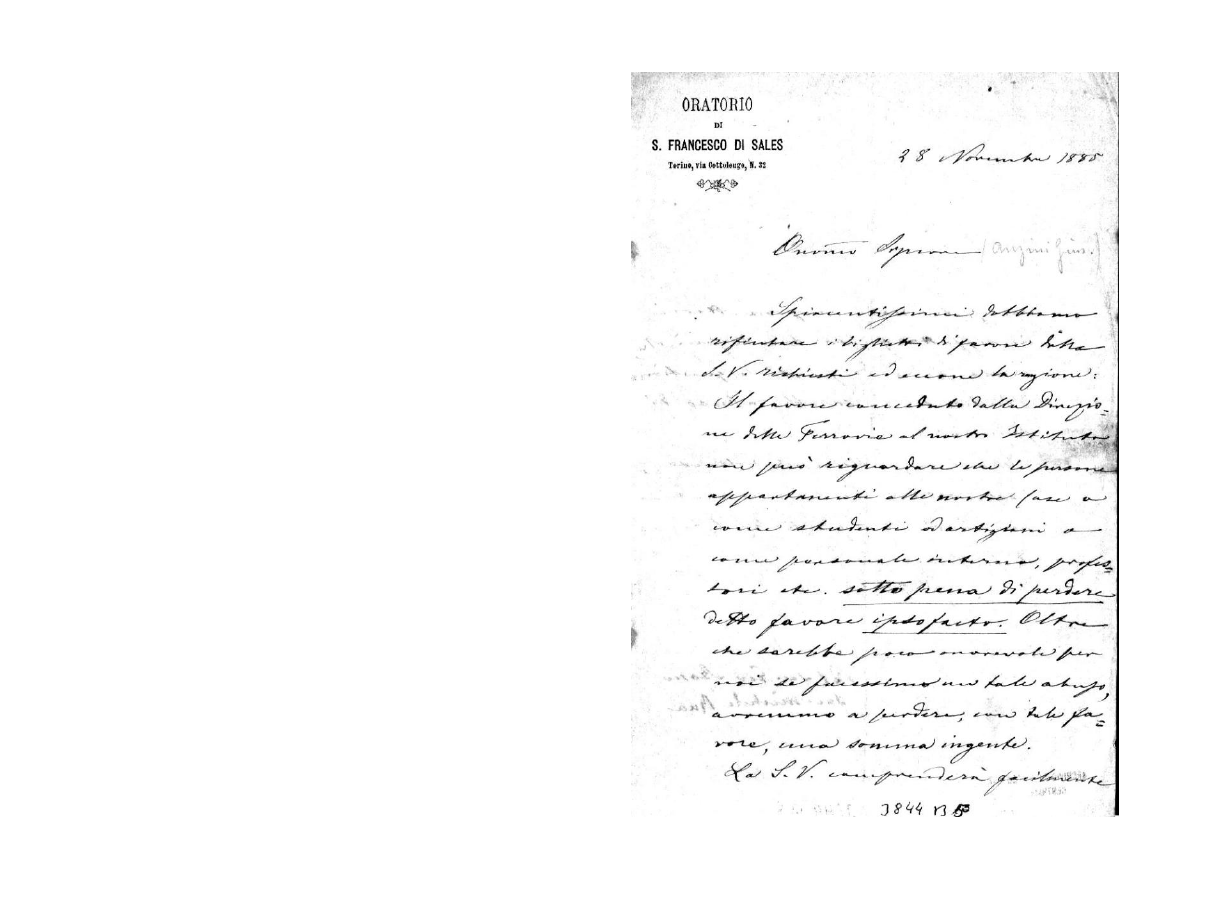 ORATORIO
DI
S. FRANCESCO DI SALES
Torino, via Cottolengo, N. 32
28 Novembre 1885
Onormo Signore (Anzini Gius.)
Spiacentissimi dobbiamo
rifiutare i biglietti di favore dalla
S. V. richiesti ed eccone la ragione:
Il favore conceduto dalla Direzio-
ne delle Ferrovie al nostro Istituto
non può riguardare che le persone
appartenenti alle nostre Case o
come studenti od artigiani o
come personale interno, profes=
sori etc. sotto pena di perdere
detto favore ipso facto. Oltre
che sarebbe poco onorevole per
noi se facessimo un tale abuso,
avremmo a perdere, con tale fa=
vore, una somma ingente.
La S. V. comprenderà facilmente
3844 B 5